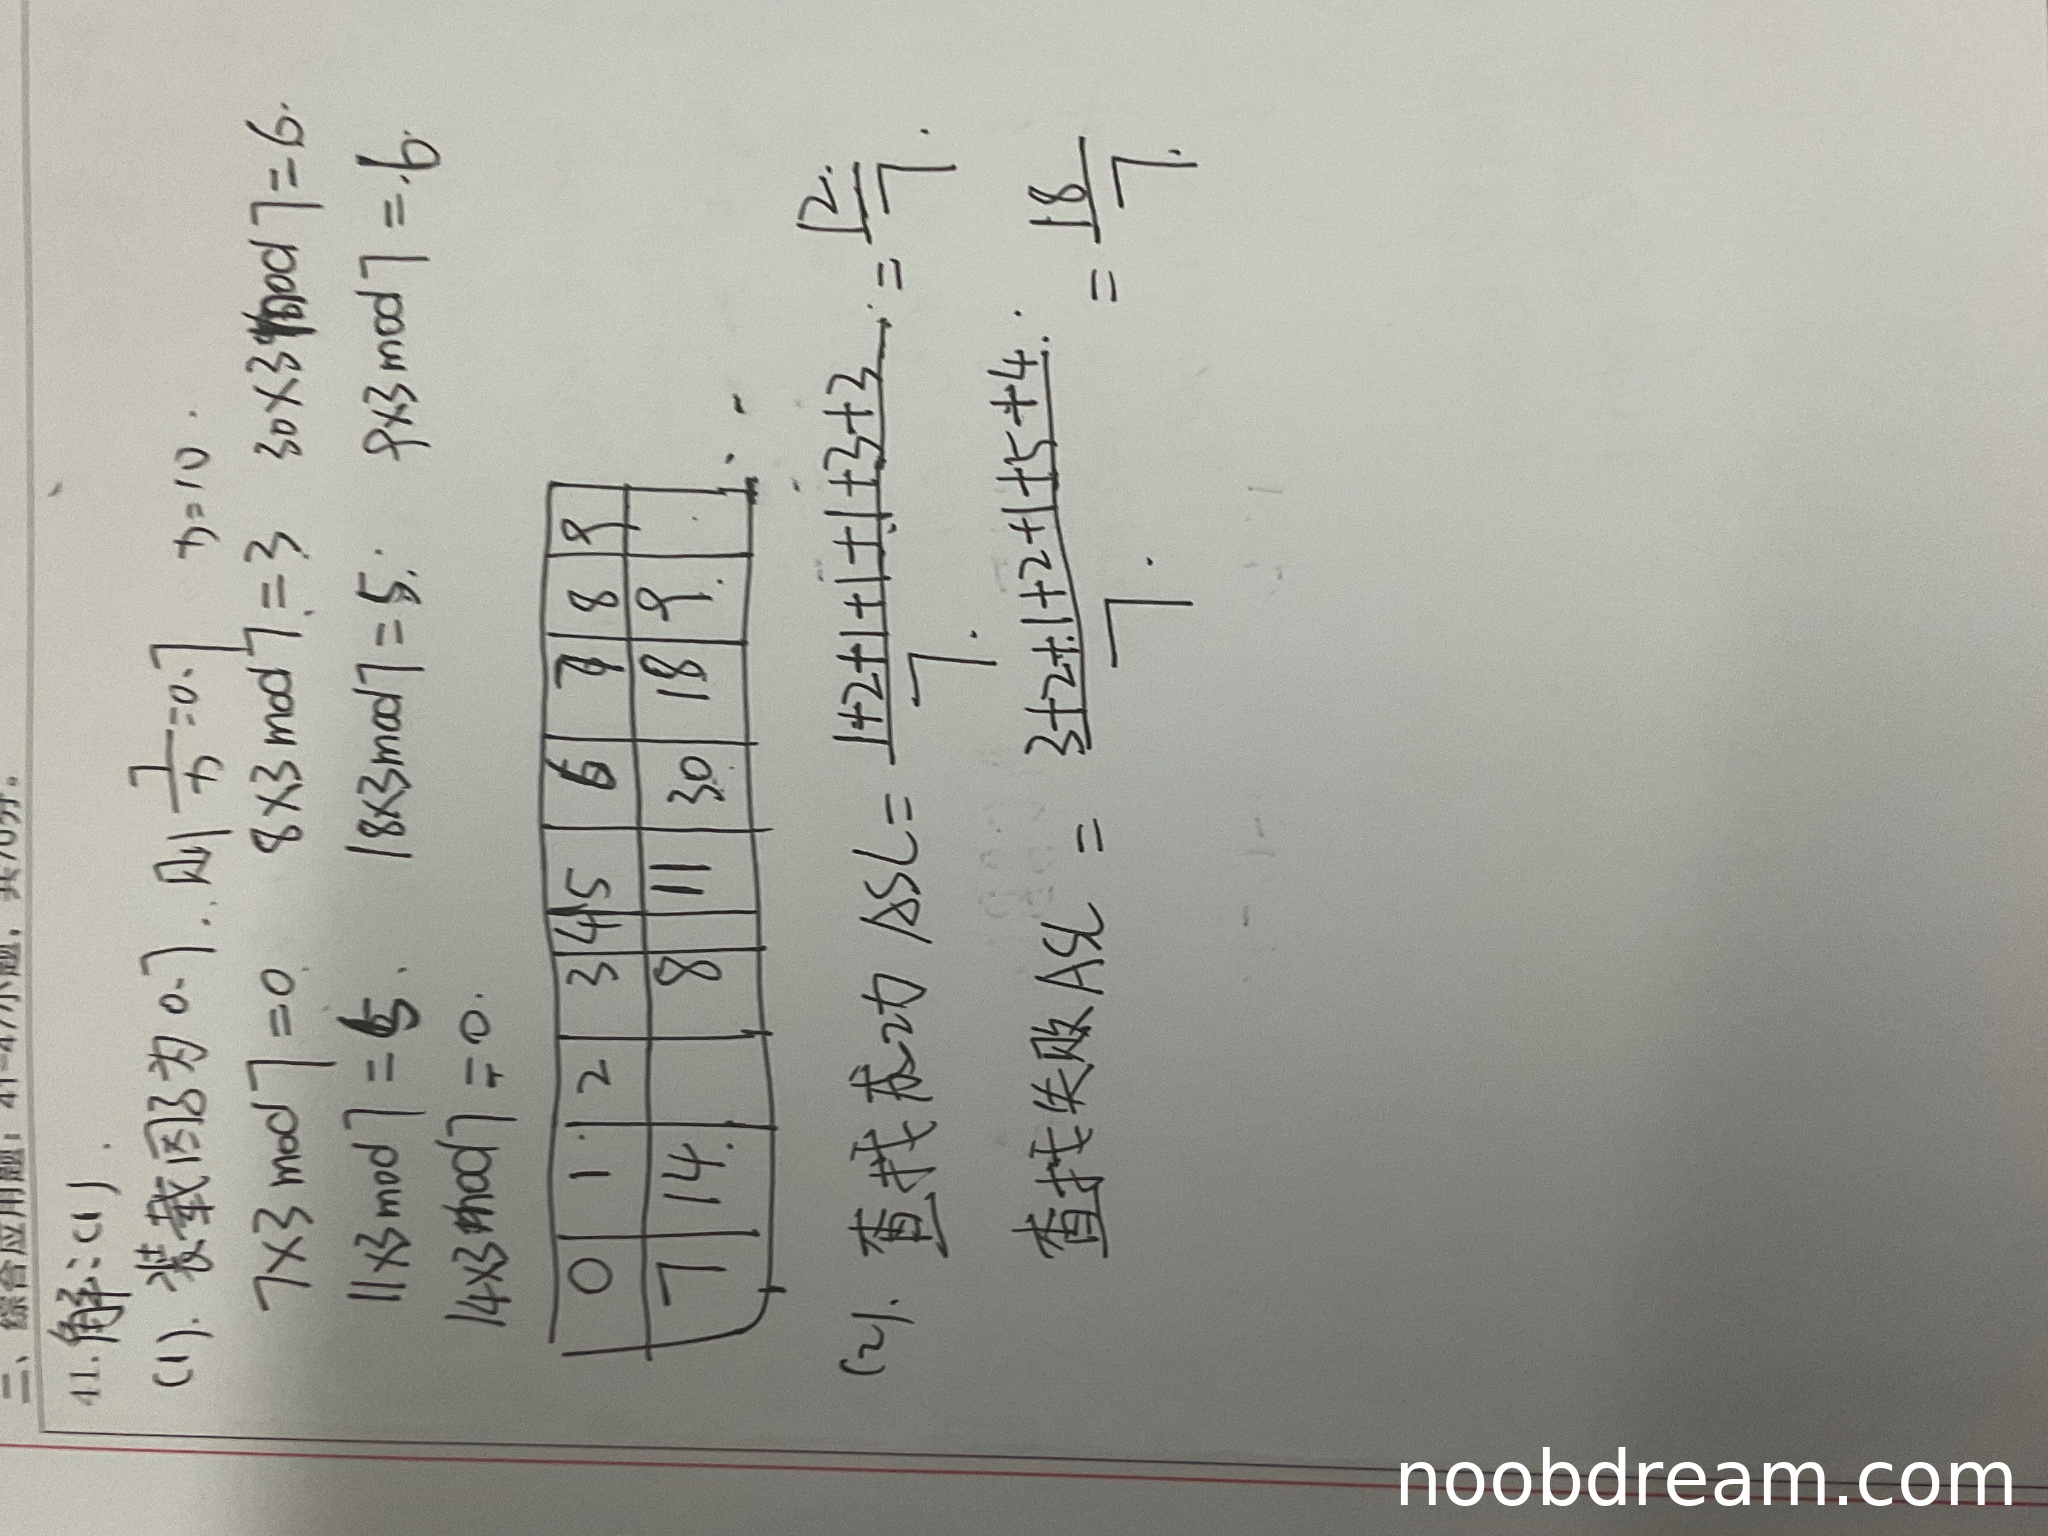 三、综合应用题：41-47小题，共70分。
41. 解：(1).
(1). 装载因子为0.7. 则 7/n=0.7 n=10.
7×3 mod 7=0. 8×3 mod 7=3 30×3 mod 7=6.
11×3 mod 7=5. 18×3 mod 7=5. 9×3 mod 7=6
14×3 mod 7=0.
0 1 2 3 4 5 6 7 8 9
7 14 8 11 30 18 9
(2). 查找成功 ASL= 1+2+1+1+1+3+3/7 = 12/7.
查找失败 ASL = 3+2+1+2+1+5+4/7 = 18/7.
noobdream.com